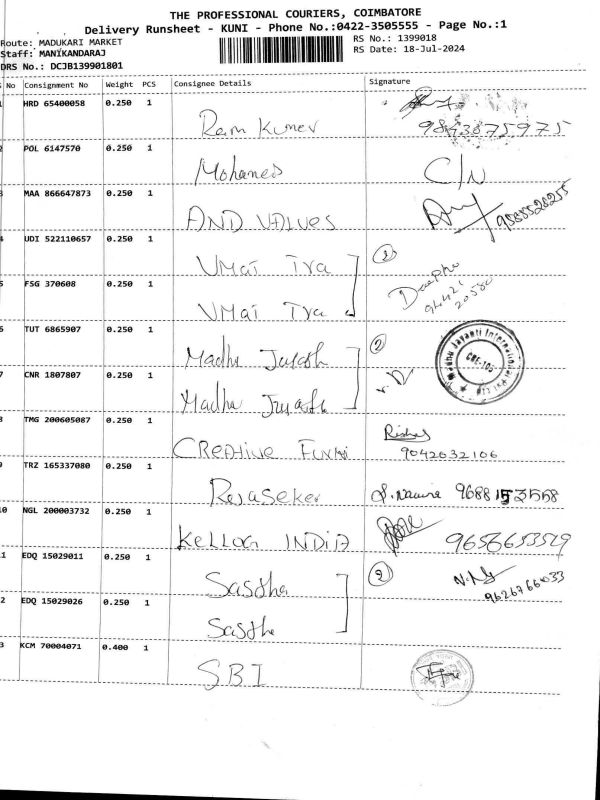 THE PROFESSIONAL COURIERS, COIMBATORE
Delivery Runsheet - KUNI - Phone No.:0422-3505555 - Page No.:1
Route: MADUKARI MARKET
Staff: MANIKANDARAJ
DRS No.: DCJB139901801
RS No.: 1399018
RS Date: 18-Jul-2024
No Consignment No Weight PCS Consignee Details Signature
HRD 65400058 0.250 1 Ram Kumer 9843875975
POL 6147570 0.250 1 Mohamed C/N
MAA 866647873 0.250 1 AND VALVES 9585528255
UDI 522110657 0.250 1 VMai Tra 2
FSG 370608 0.250 1 VMai Tra
TUT 6865907 0.250 1 Madhu 2 Madhu Jayanti International Pvt Ltd CBE-105
CNR 1807807 0.250 1 Madhu
TMG 200605087 0.250 1 CREATIVE 9042032106
TRZ 165337080 0.250 1 Rajaseker
10 NGL 200003732 0.250 1 KELLOG INDIA 9656653529
1 EDQ 15029011 0.250 1 Sasdha 2 9626766033
2 EDQ 15029026 0.250 1
3 KCM 70004071 0.400 1 SBI